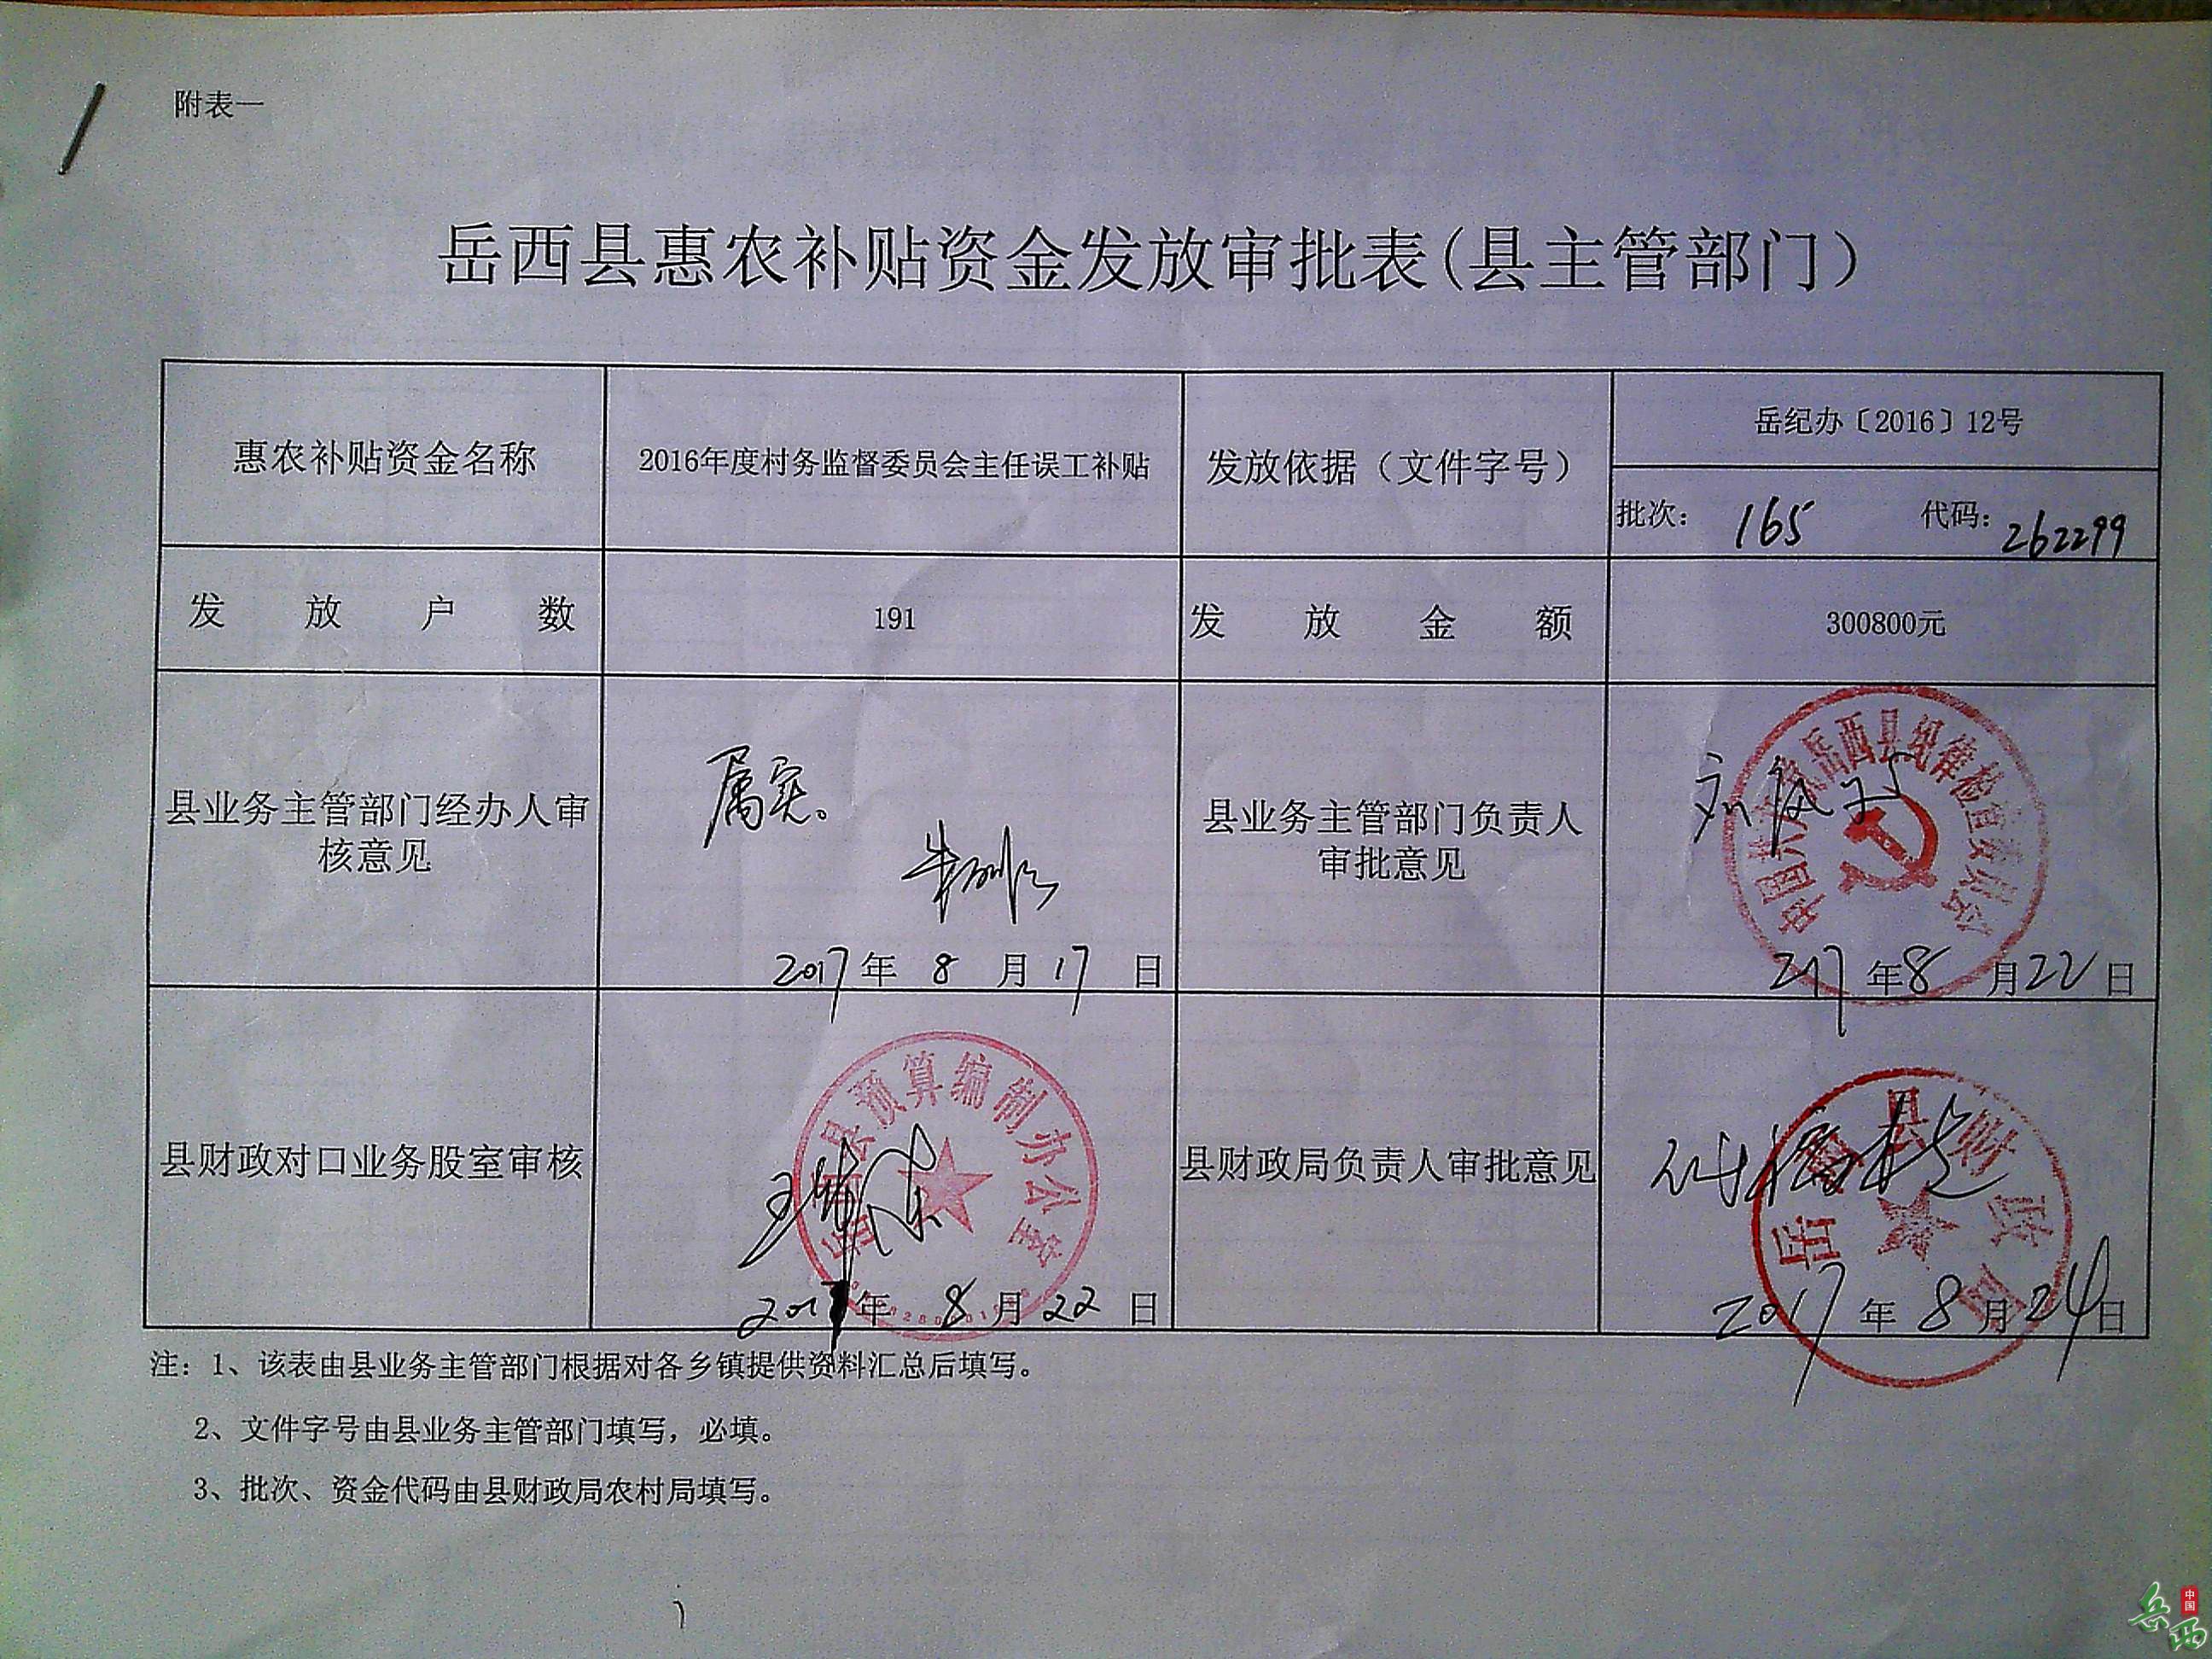 附表一
岳西县惠农补贴资金发放审批表(县主管部门)
惠农补贴资金名称
2016年度村务监督委员会主任误工补贴
发放依据（文件字号）
岳纪办〔2016〕12号
批次： 165 代码：262299
发放户数
191
发放金额
300800元
县业务主管部门经办人审
核意见
属实。
2017年 8 月 17 日
县业务主管部门负责人
审批意见
中国共产党岳西县纪律检查委员会
217年8月22日
县财政对口业务股室审核
岳西县预算编制办公室
2017年 8月22日
县财政局负责人审批意见
岳西县财政局
2017年8月24日
注：1、该表由县业务主管部门根据对各乡镇提供资料汇总后填写。
2、文件字号由县业务主管部门填写，必填。
3、批次、资金代码由县财政局农村局填写。
中国
岳西